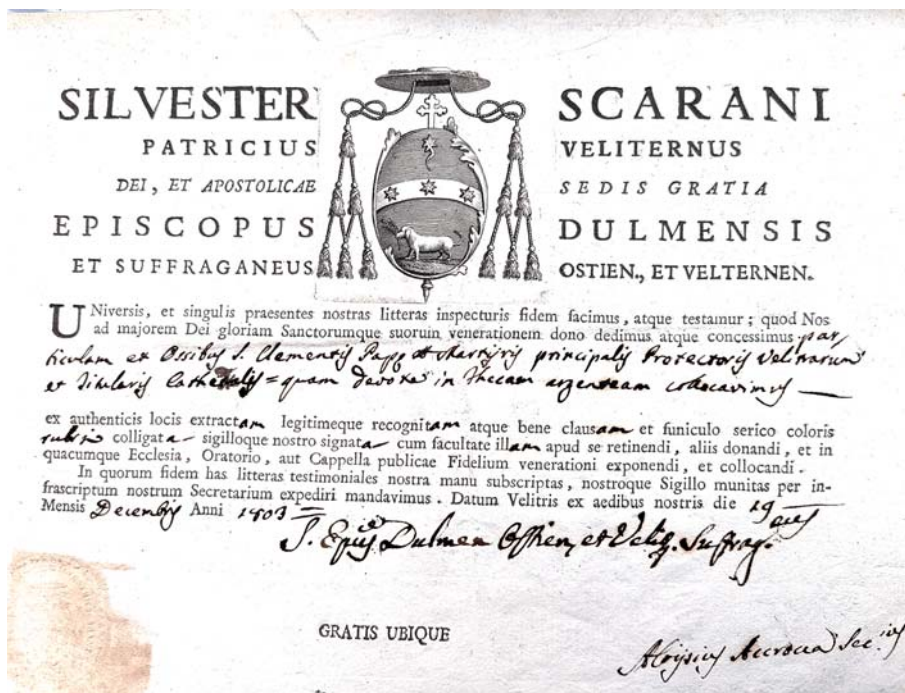 SILVESTER SCARANI
PATRICIUS VELITERNUS
DEI, ET APOSTOLICAE SEDIS GRATIA
EPISCOPUS DULMENSIS
ET SUFFRAGANEUS OSTIEN., ET VELTERNEN.
UNiversis, et singulis praesentes nostras litteras inspecturis fidem facimus, atque testamur; quod Nos
ad majorem Dei gloriam Sanctorumque suoruin venerationem dono dedimus atque concessimus par
ticulam ex Ossibus S. Clementis Papę et Martyris principalis Protectoris Velitrarum
et Titularis Cathedralis = quam devote in thecam argenteam collocavimus —
ex authenticis locis extractam legitimeque recognitam atque bene clausam et funiculo serico coloris
rubri colligata sigilloque nostro signata cum facultate illam apud se retinendi, aliis donandi, et in
quacumque Ecclesia, Oratorio, aut Cappella publicae Fidelium venerationi exponendi, et collocandi.
In quorum fidem has litteras testimoniales nostra manu subscriptas, nostroque Sigillo munitas per in-
frascriptum nostrum Secretarium expediri mandavimus. Datum Velitris ex aedibus nostris die 19
Mensis Decembris Anni 1803 =
S. Epūs Dulmen Ostien, et Velit. Suffrag.
GRATIS UBIQUE
Aloysius Secius